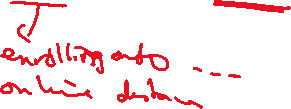 enrolling onto ...
online distance